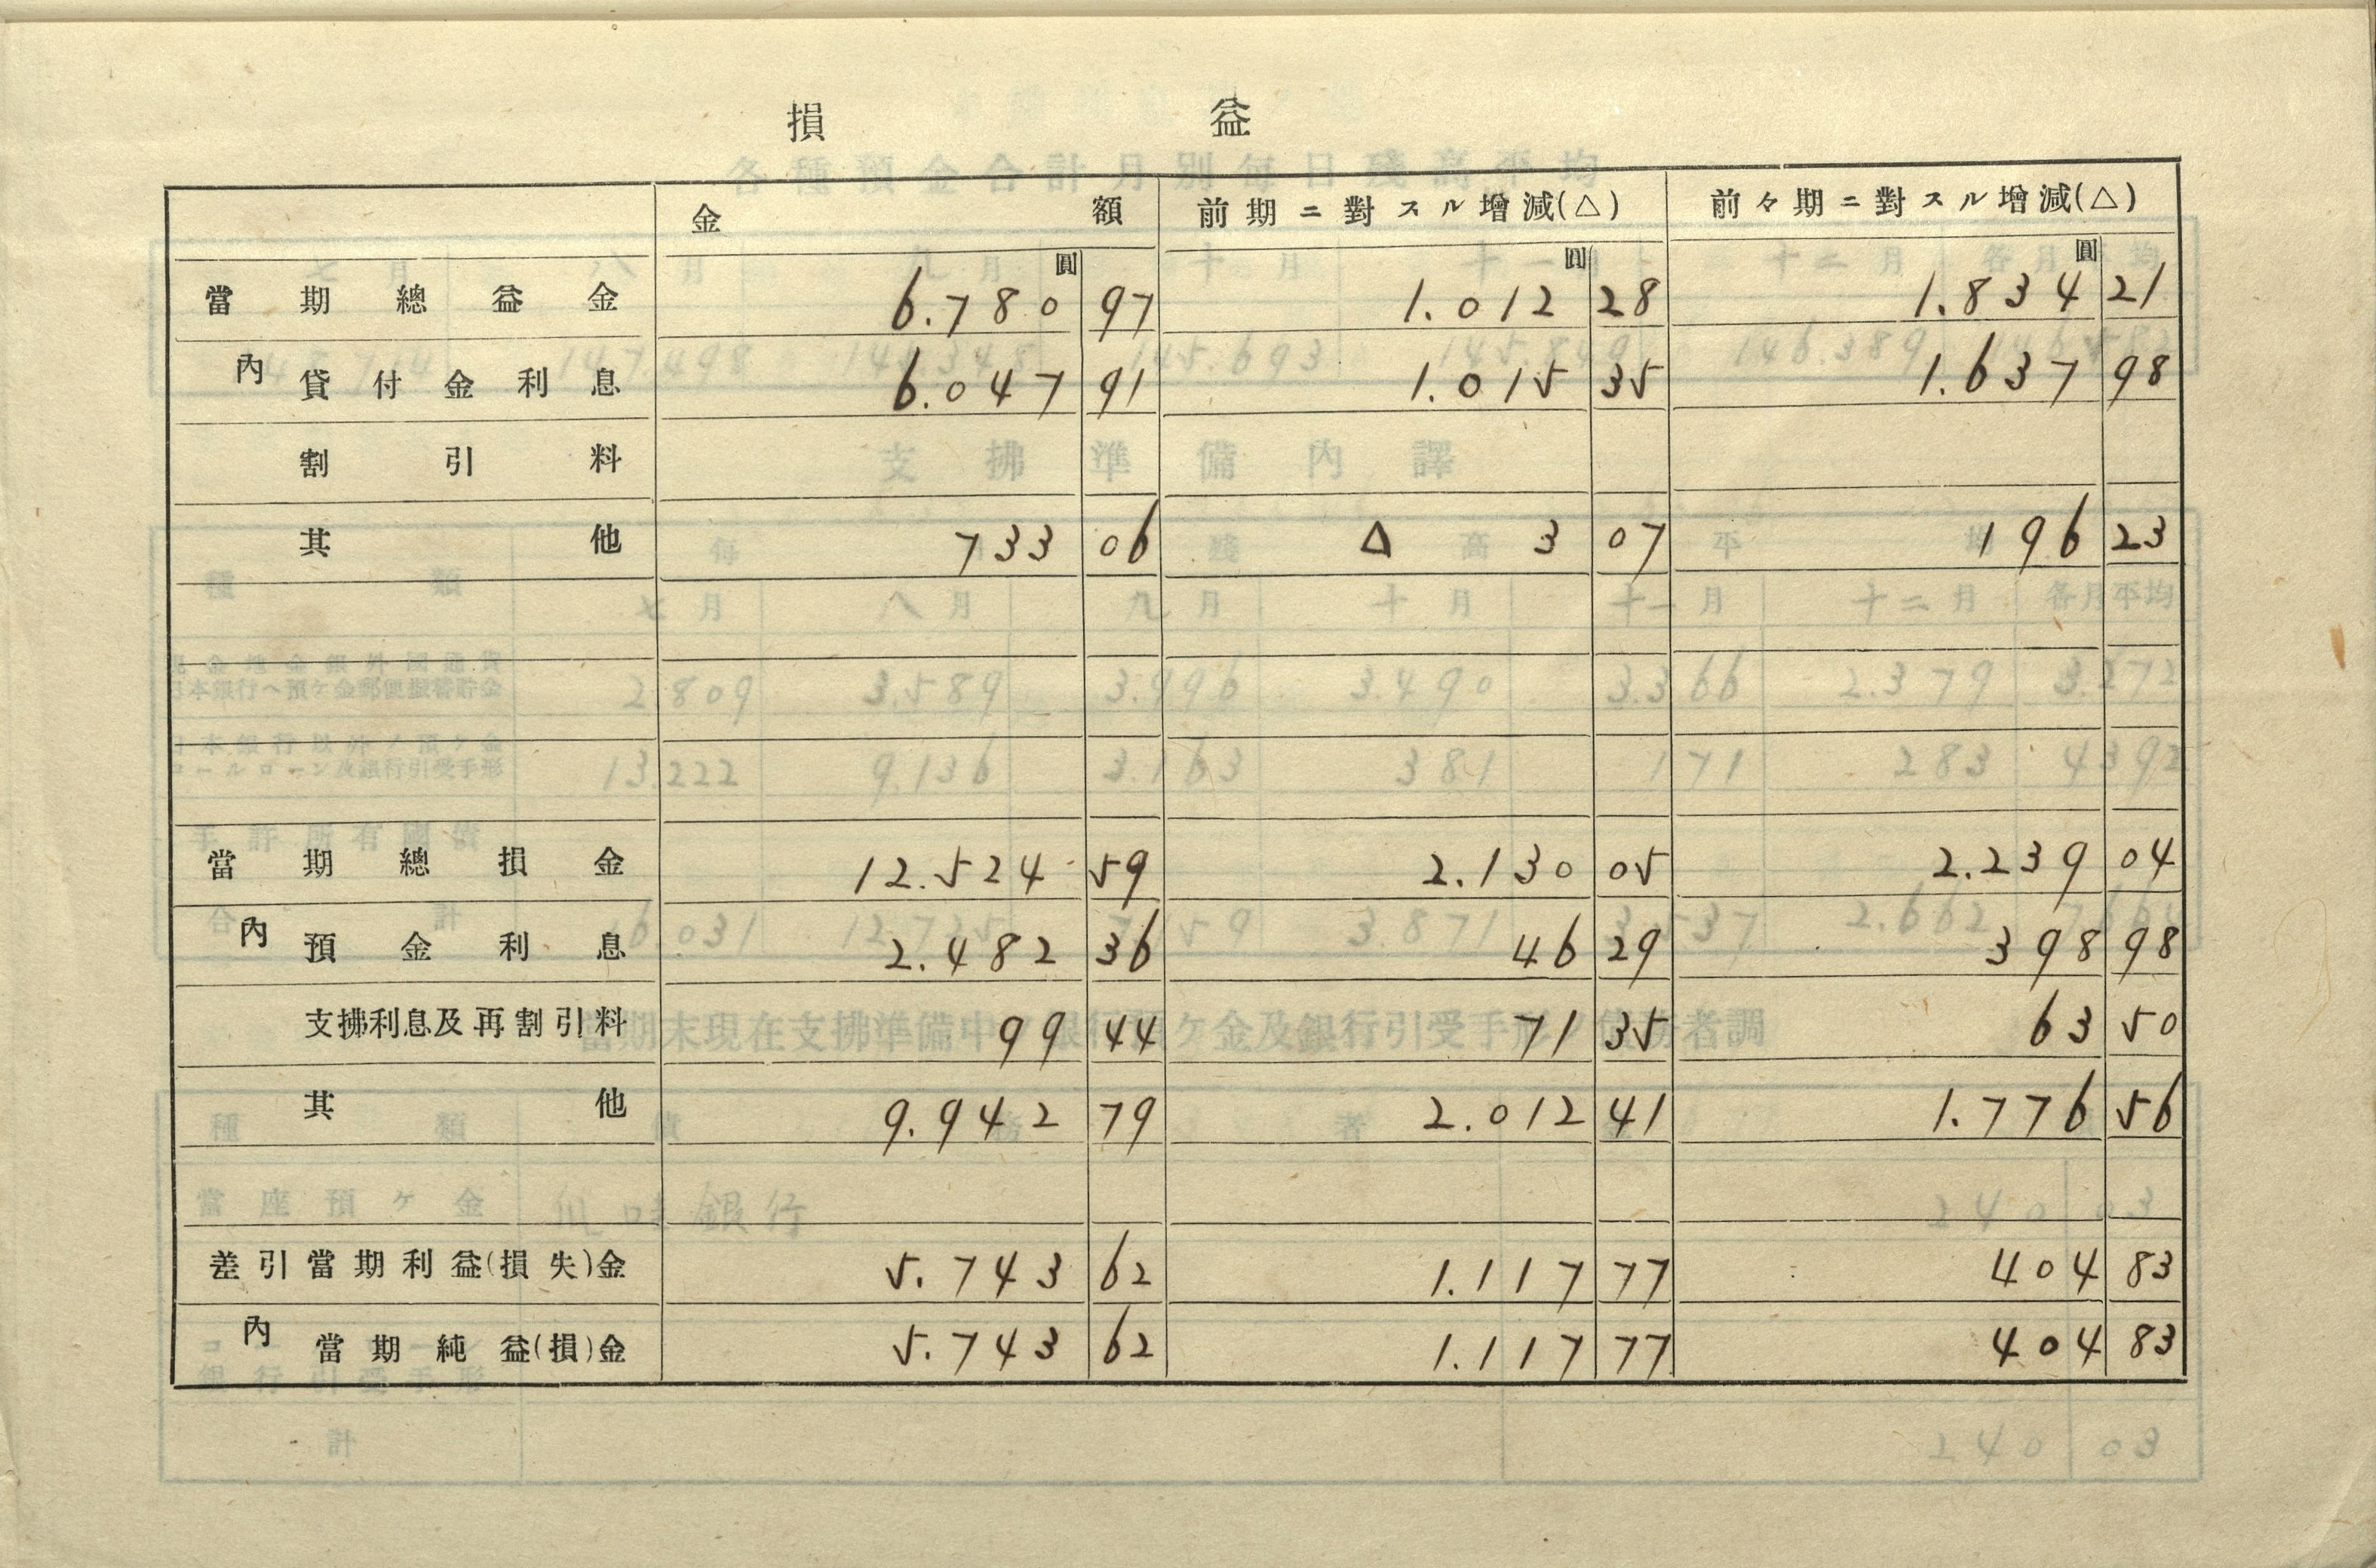 損 益
金 額 前期ニ對スル增減(△) 前々期ニ對スル增減(△)
圓 圓 圓
當期總益金 6.780 97 1.012 28 1.834 21
內 貸付金利息 6.047 91 1.015 35 1.637 98
割引料
其他 733 06 △ 3 07 196 23
當期總損金 12.524 59 2.130 05 2.239 04
內 預金利息 2.482 36 46 29 398 98
支拂利息及再割引料 99 44 71 35 63 50
其他 9.942 79 2.012 41 1.776 56
差引當期利益(損失)金 5.743 62 1.117 77 404 83
內 當期純益(損)金 5.743 62 1.117 77 404 83